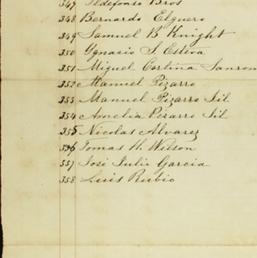 347 Ildefonso Bros
348 Bernardo Elguero
349 Samuel B Knight
350 Ygnacio J. Esteva
351 Miguel Cortina Sanrom
352 Manuel Pizarro
353 Manuel Pizarro Sil
354 Amelia Pizarro Sil
355 Nicolas Alvarez
356 Tomas H. Wilson
357 José Julio Garcia
358 Luis Rubio